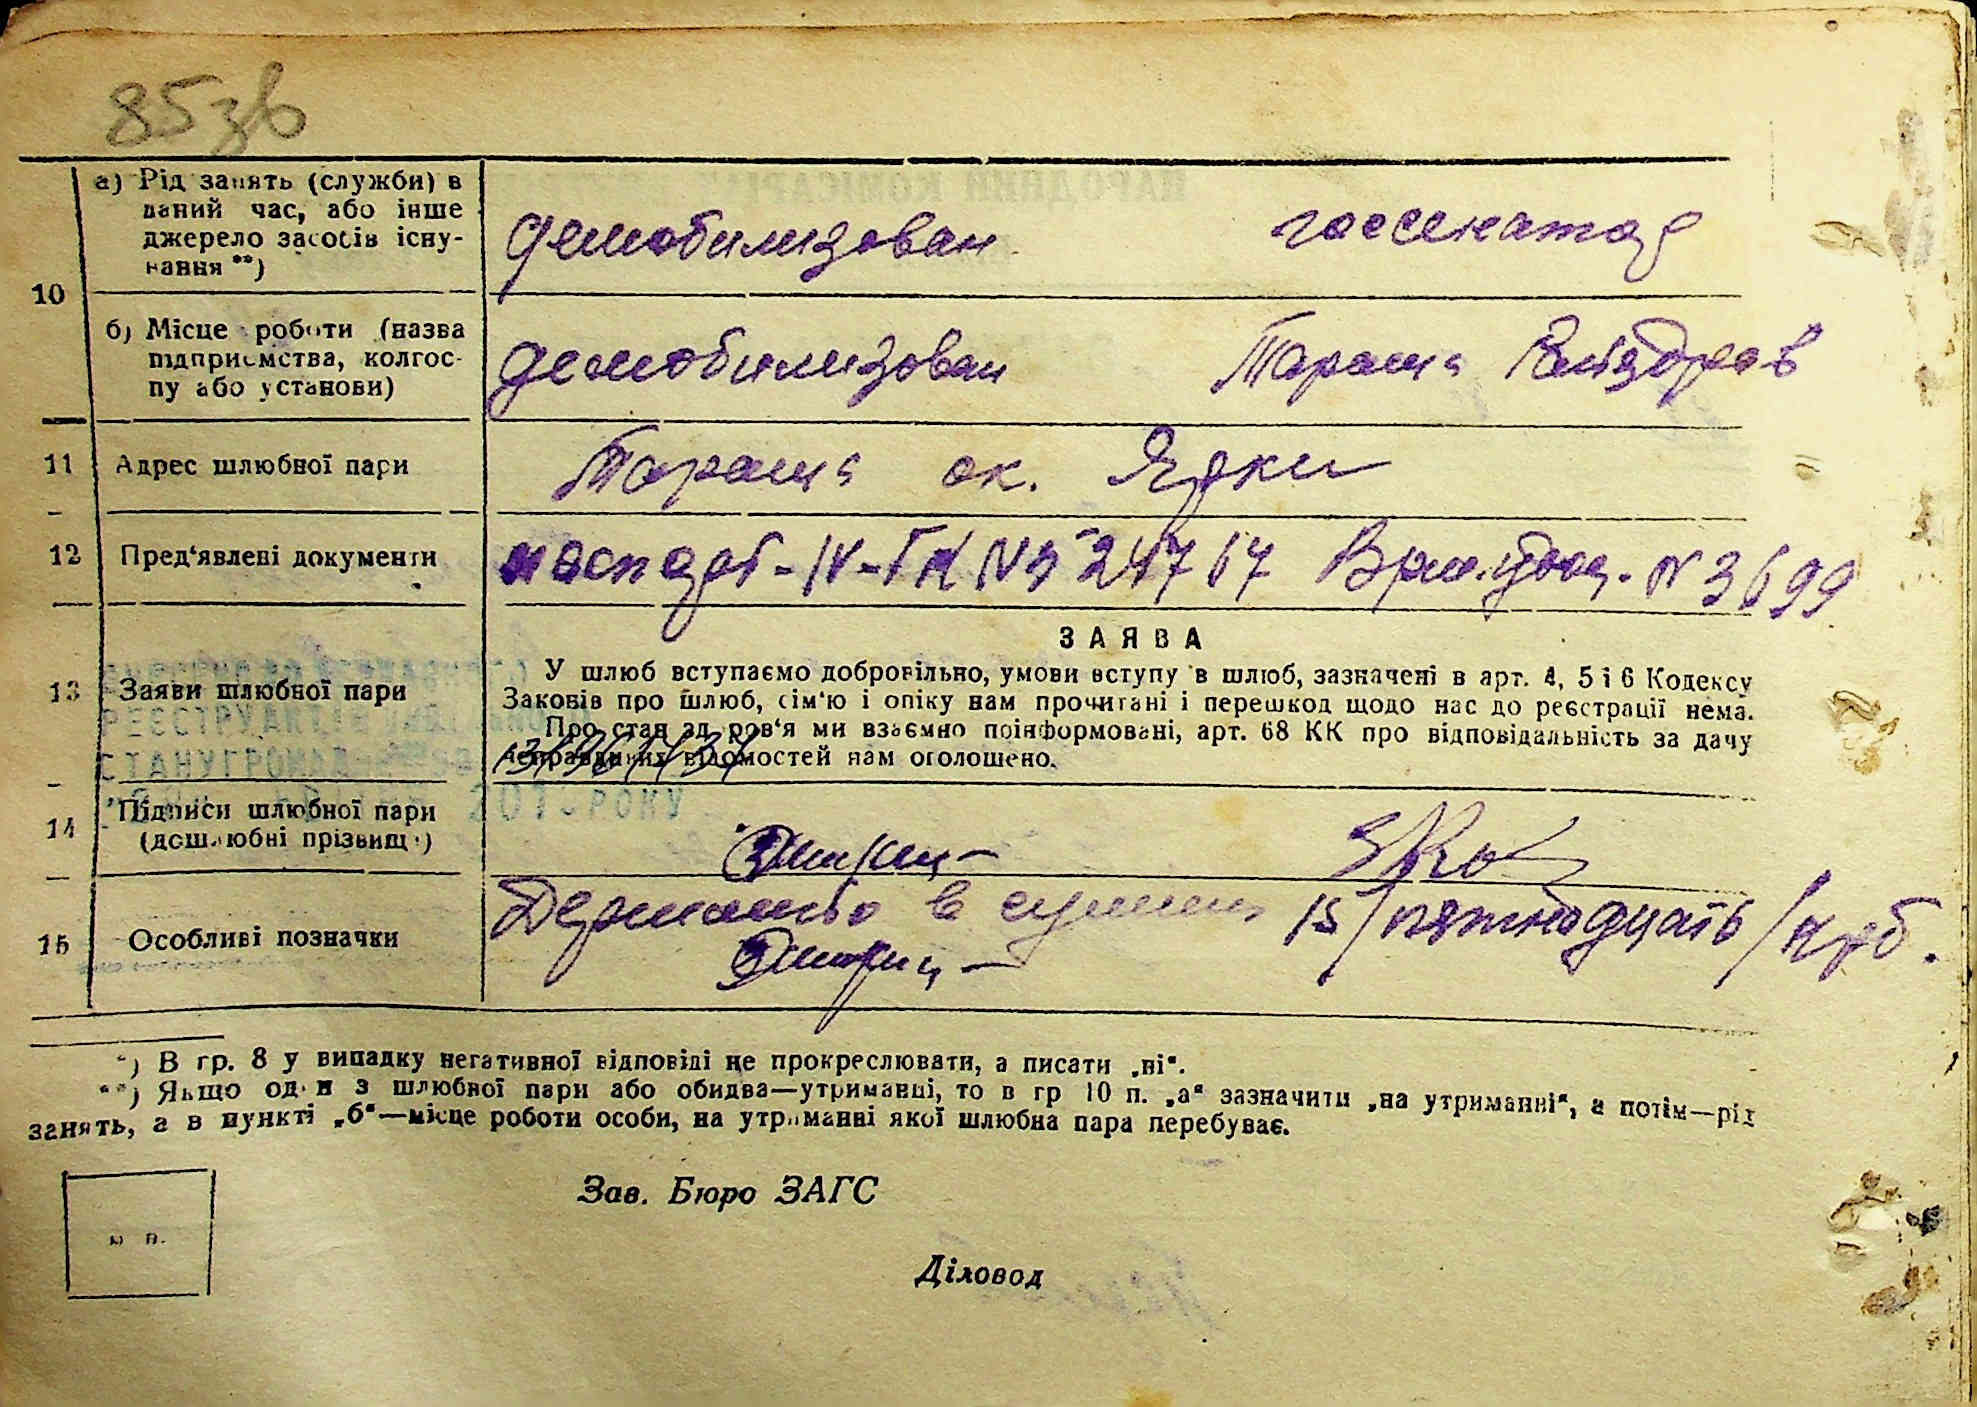 85зв
10
а) Рід занять (служби) в
даний час, або інше
джерело засобів існу-
вання **)
демобилизован
б) Місце роботи (назва
підприємства, колгос-
пу або установи)
демобилизован Тараща Райздрав
11 Адрес шлюбної пари
Тараща ок. Ярки
12 Пред'явлені документи
паспорт-IV-ГК № 524767 № 3699
13 Заяви шлюбної пари
ЗАЯВА
У шлюб вступаємо добровільно, умови вступу в шлюб, зазначені в арт. 4, 5 і 6 Кодексу
Законів про шлюб, сім'ю і опіку нам прочитані і перешкод щодо нас до реєстрації нема.
Про стан здоров'я ми взаємно поінформовані, арт. 68 КК про відповідальність за дачу
неправдивих відомостей нам оголошено.
14 Підписи шлюбної пари
(дошлюбні прізвища)
15 Особливі позначки
в сумме 15 /пятнадцать/ крб.
*) В гр. 8 у випадку негативної відповіді не прокреслювати, а писати „ні“.
**) Якщо один з шлюбної пари або обидва—утриманці, то в гр 10 п. „а“ зазначити „на утриманні“, а потім—рід
занять, а в пункті „б“—місце роботи особи, на утриманні якої шлюбна пара перебуває.
Зав. Бюро ЗАГС
м п.
Діловод